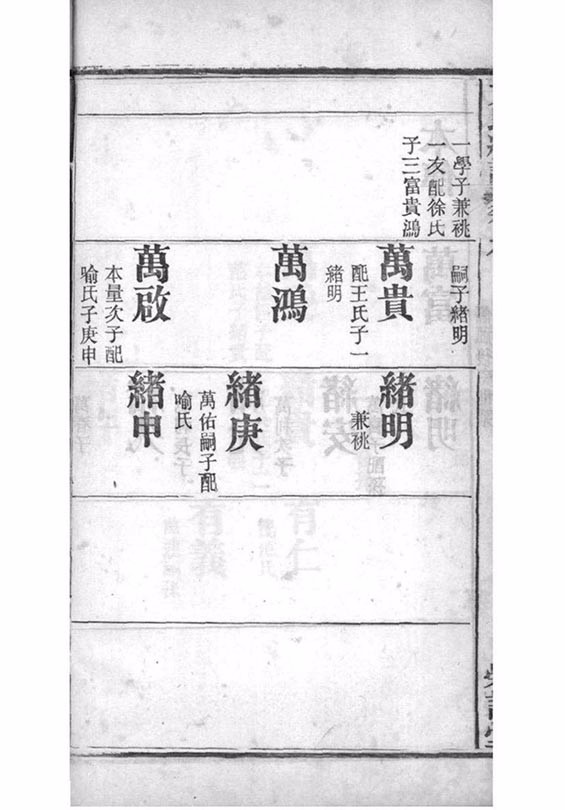 一學子兼祧
一友配徐氏
子三富貴鴻
嗣子緒明
萬貴
配王氏子一
緒明
萬鴻
萬啟
本量次子配
喻氏子庚申
緒明
兼祧
緒庚
萬佑嗣子配
喻氏
緒申